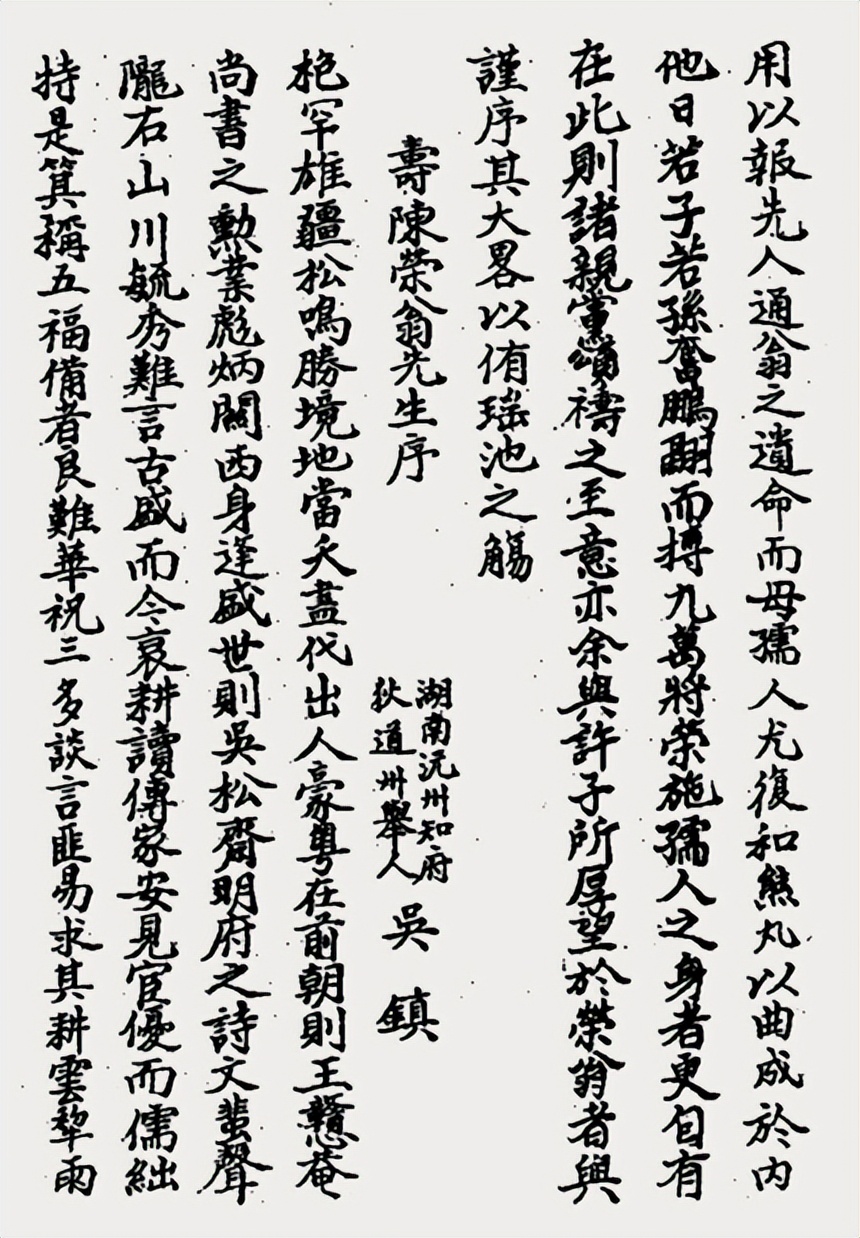 用以報先人通翁之遺命而母孺人尤復和熊丸以曲成於内
他日若子若孫奮鵬翮而摶九萬將榮施孺人之身者更自有
在此則諸親黨頌禱之至意亦余與許子所厚望於榮翁者與
謹序其大畧以侑瑶池之觴
壽陳榮翁先生序
湖南沅州知府
狄道州舉人
吳鎮
枹罕雄疆松鳴勝境地當天盡代出人豪粤在前朝則王戇菴
尚書之勲業彪炳關西身逢盛世則吳松齋明府之詩文蜚聲
隴右山川毓秀難言古盛而今衰耕讀傳家安見宦優而儒絀
特是箕稱五福備者良難華祝三多談言匪易求其耕雲犂雨